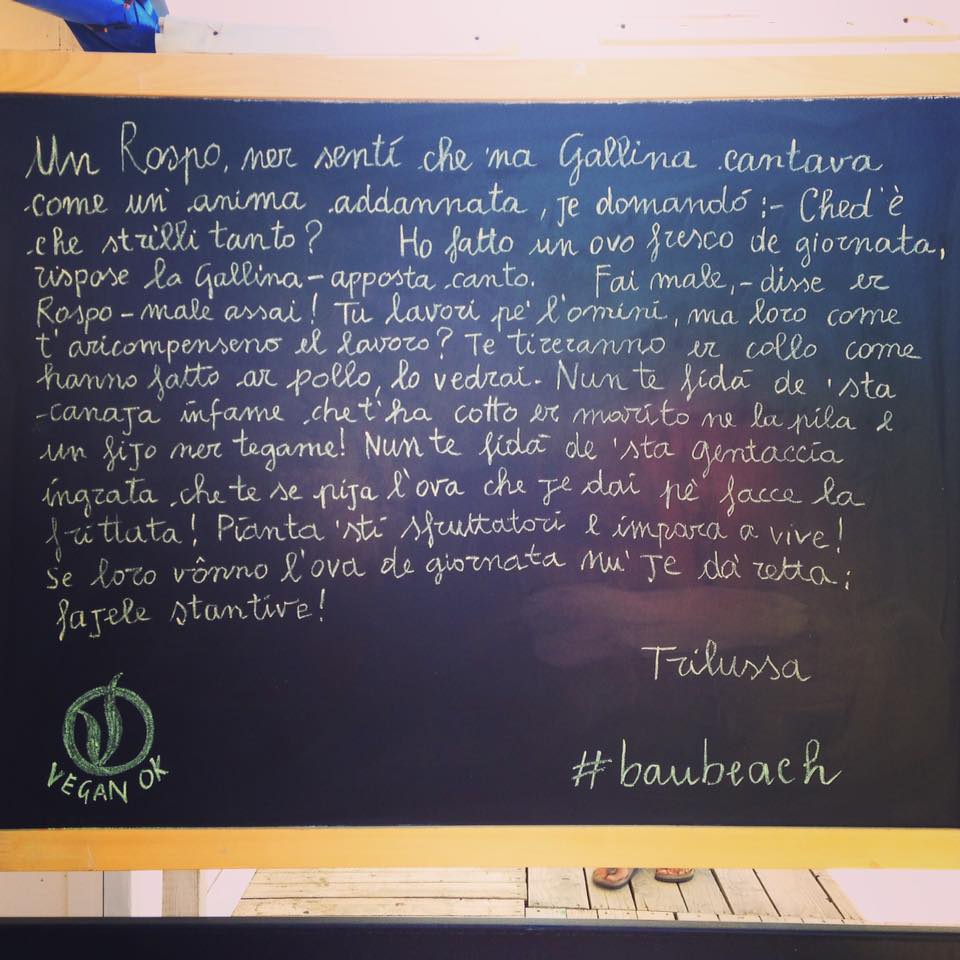 Un Rospo, ner sentí che 'na Gallina cantava
come un' anima addannata, je domandó :- Ched'è
che strilli tanto? Ho fatto un ovo fresco de giornata,
rispose la Gallina - apposta canto. Fai male, - disse er
Rospo - male assai! Tu lavori pe' l'omini, ma loro come
t'aricompenseno el lavoro? Te tireranno er collo come
hanno fatto ar pollo, lo vedrai. Nun te fidà de 'sta
canaja infame che t'ha cotto er marito ne la pila e
un fijo ner tegame! Nun te fidà de 'sta gentaccia
ingrata che te se pija l'ova che je dai pè facce la
frittata! Pianta 'sti sfruttatori e impara a vive!
Se loro vônno l'ova de giornata nu' je dà retta;
fajele stantive!
Trilussa
VEGAN OK
#baubeach